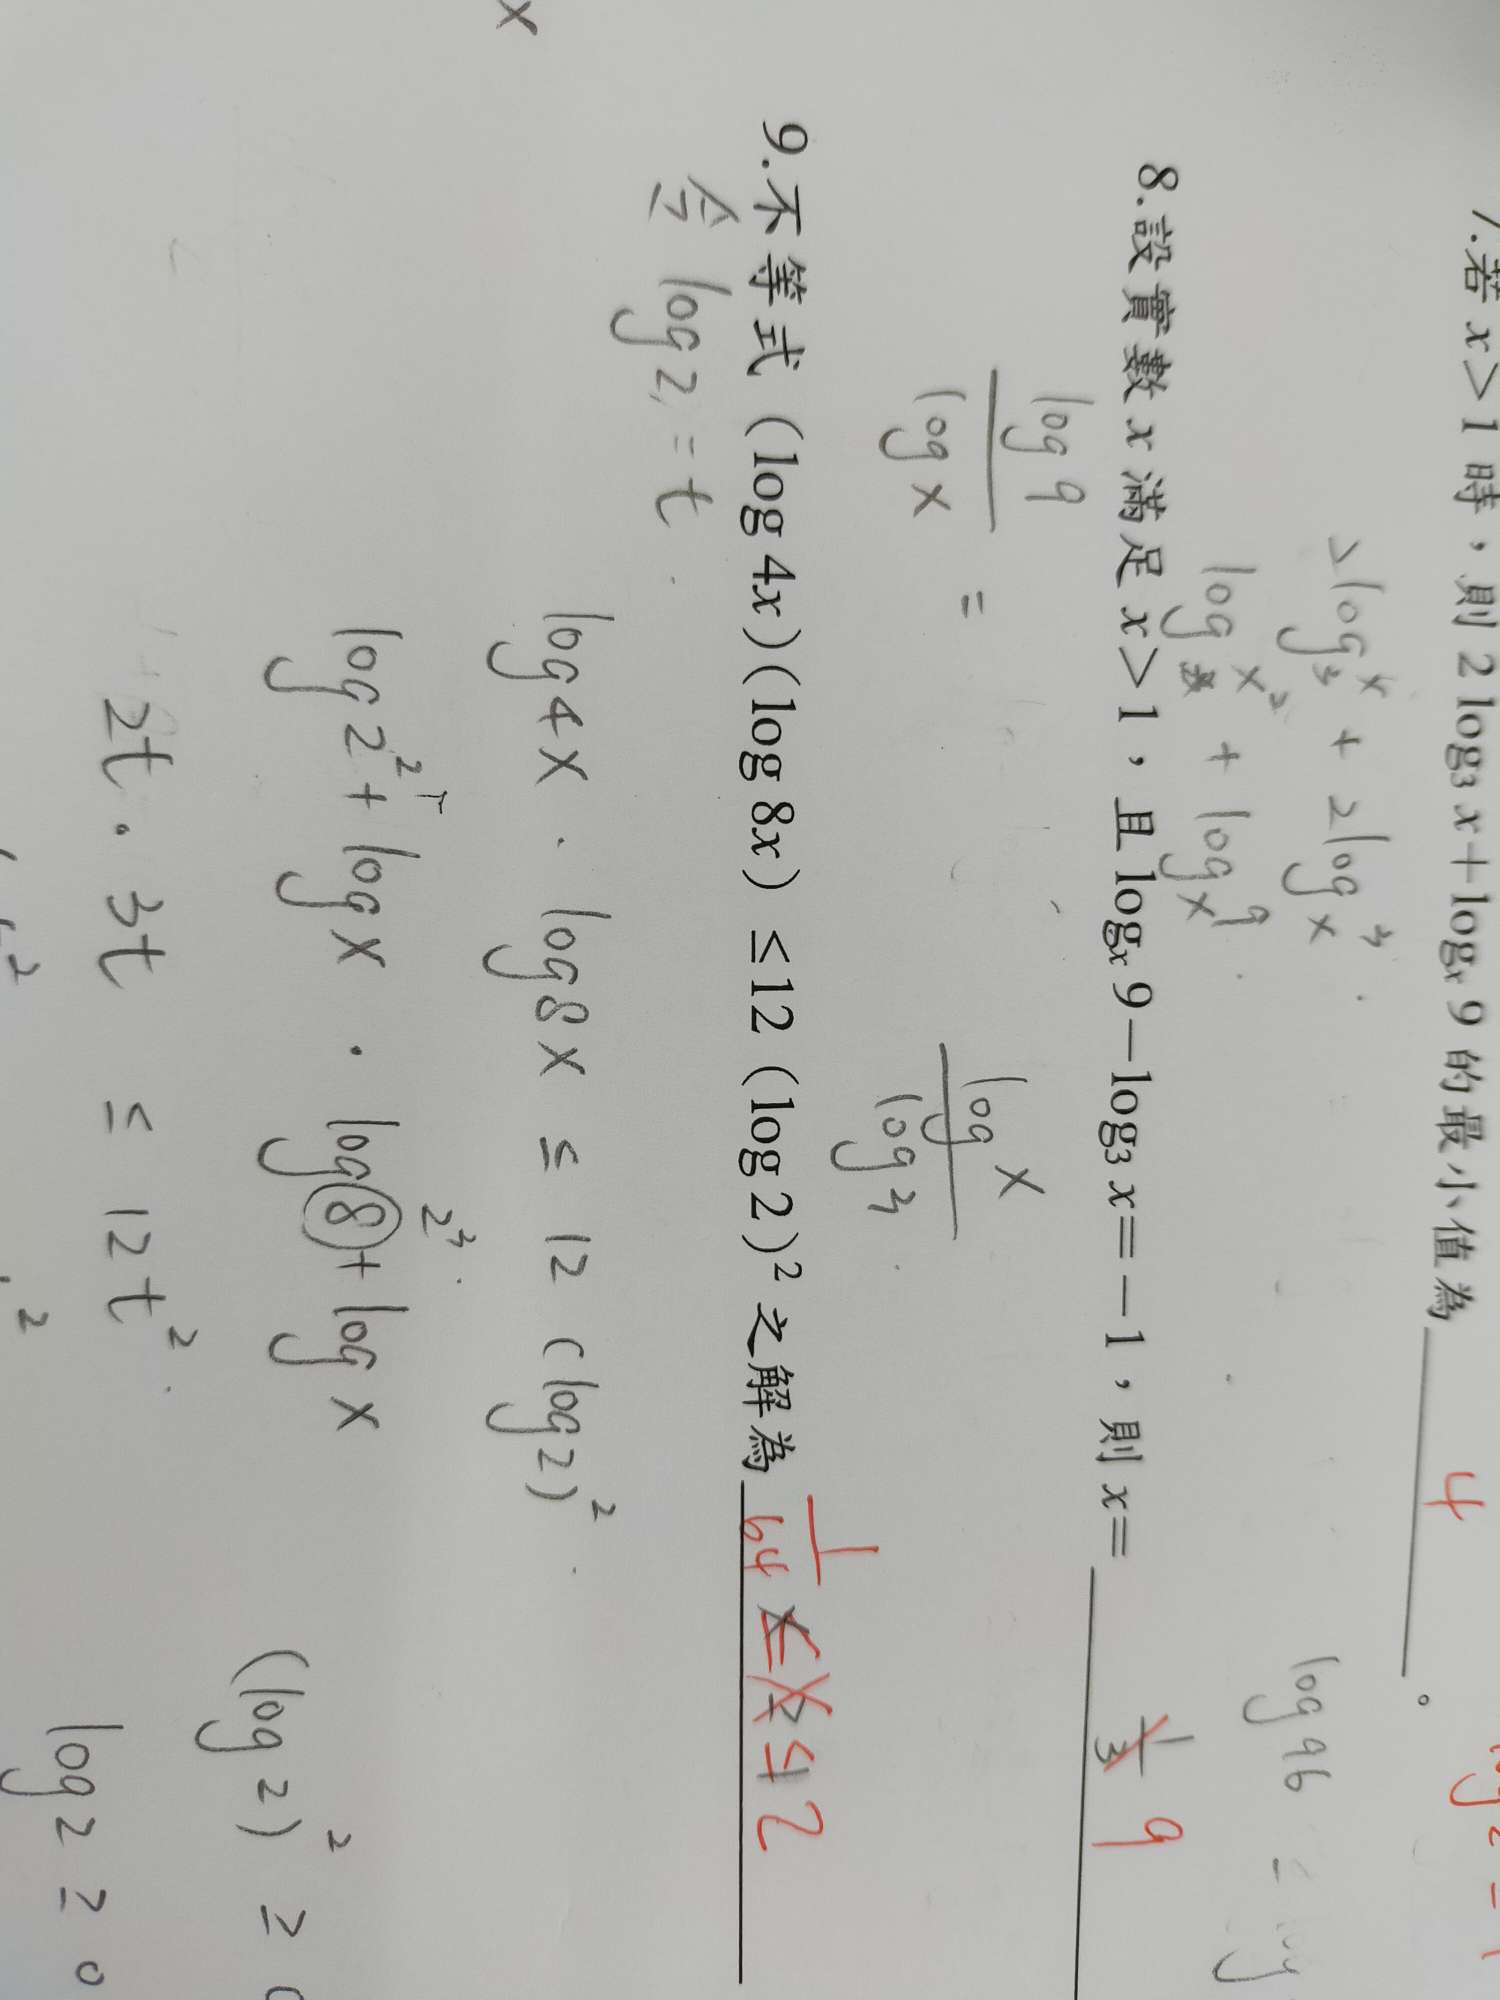 7.若 x>1 時，則 2 log₃ x+logₓ 9 的最小值為 4 。
2log₃ x + 2logₓ 3
log x² + logₓ 9
log 96 =
8.設實數 x 滿足 x>1，且 logₓ 9－log₃ x＝－1，則 x＝ 1/3 9
log 9 / log x =
log x / log 3
9.不等式（log 4x）（log 8x）≤12（log 2）² 之解為 1/64 ≤ x ≤ 2
令 log 2 = t
x
log 4x · log 8x ≤ 12 (log 2)²
log 2² + log x · log 8 + log x
2³
(log 2)² ≥ 0
2t · 3t ≤ 12t²
log 2 ≥ 0